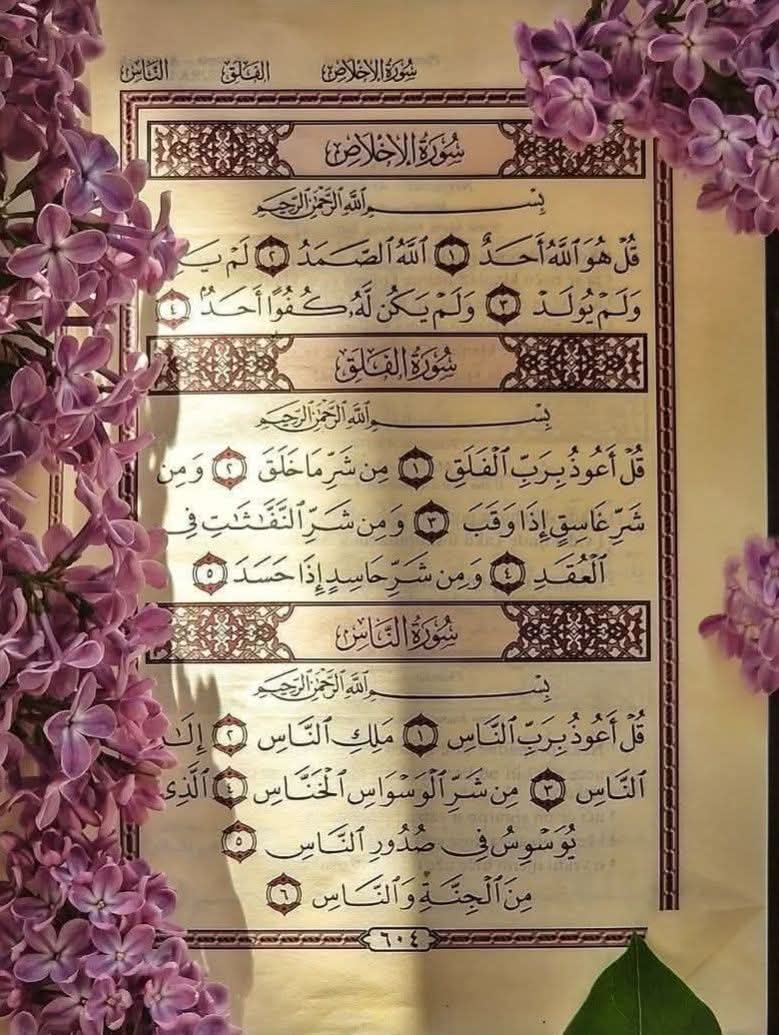 سُورَةُ الإِخْلَاصِ الفَلَقِ النَّاسِ
سُورَةُ الإِخْلَاصِ
بِسْمِ اللَّهِ الرَّحْمَٰنِ الرَّحِيمِ
قُلْ هُوَ ٱللَّهُ أَحَدٌ ١ ٱللَّهُ ٱلصَّمَدُ ٢ لَمْ يَـ
وَلَمْ يُولَدْ ٣ وَلَمْ يَكُن لَّهُۥ كُفُوًا أَحَدٌۢ ٤
سُورَةُ الفَلَقِ
بِسْمِ اللَّهِ الرَّحْمَٰنِ الرَّحِيمِ
قُلْ أَعُوذُ بِرَبِّ ٱلْفَلَقِ ١ مِن شَرِّ مَا خَلَقَ ٢ وَمِن
شَرِّ غَاسِقٍ إِذَا وَقَبَ ٣ وَمِن شَرِّ ٱلنَّفَّٰثَٰتِ فِى
ٱلْعُقَدِ ٤ وَمِن شَرِّ حَاسِدٍ إِذَا حَسَدَ ٥
سُورَةُ النَّاسِ
بِسْمِ اللَّهِ الرَّحْمَٰنِ الرَّحِيمِ
قُلْ أَعُوذُ بِرَبِّ ٱلنَّاسِ ١ مَلِكِ ٱلنَّاسِ ٢ إِلَٰـ
ٱلنَّاسِ ٣ مِن شَرِّ ٱلْوَسْوَاسِ ٱلْخَنَّاسِ ٤ ٱلَّذِى
يُوَسْوِسُ فِى صُدُورِ ٱلنَّاسِ ٥
مِنَ ٱلْجِنَّةِ وَٱلنَّاسِ ٦
٦٠٤